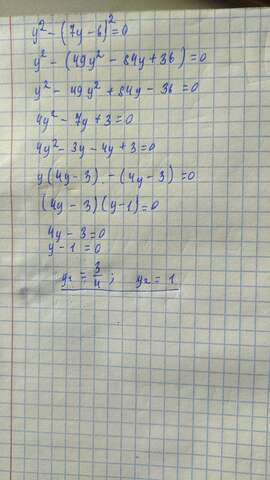 y² - (7y - 6)² = 0
y² - (49y² - 84y + 36) = 0
y² - 49y² + 84y - 36 = 0
4y² - 7y + 3 = 0
4y² - 3y - 4y + 3 = 0
y(4y - 3) - (4y - 3) = 0
(4y - 3)(y - 1) = 0
4y - 3 = 0
y - 1 = 0
y₁ = 3/4; y₂ = 1